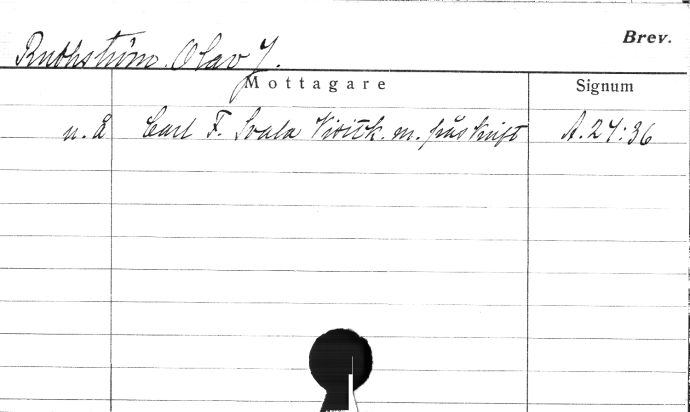 Brev.
Ruthström. Olav J.
Mottagare Signum
u. å Carl F. Svala Visitk. m. påskrift A.27:36